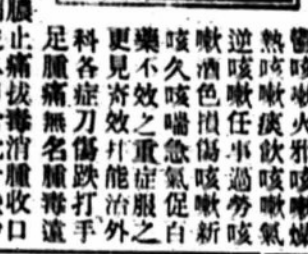 鬱咳嗽火邪咳嗽燥
熱咳嗽痰飲咳嗽氣
逆咳嗽任事過勞咳
嗽酒色損傷咳嗽新
咳久咳喘急氣促百
藥不效之重症服之
更見奇效并能治外
科各症刀傷跌打手
足腫痛無名腫毒遠
膿止痛拔毒消腫收口